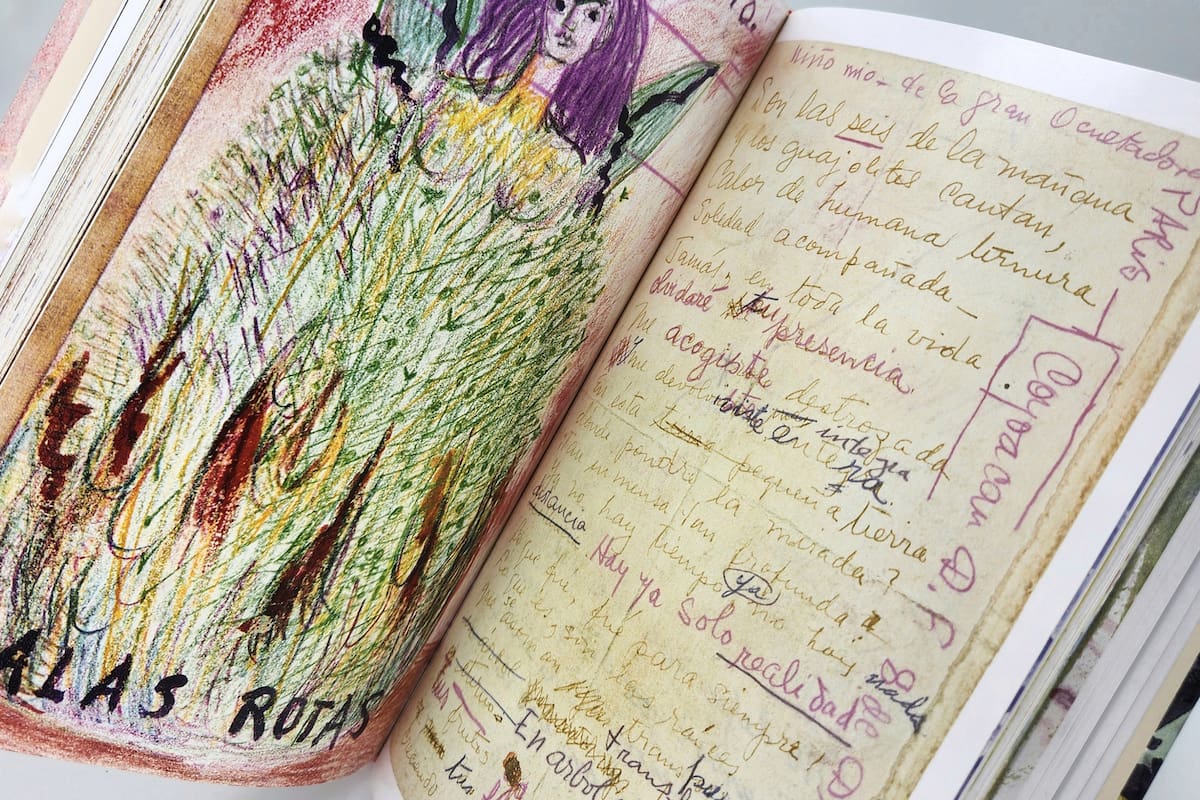 ALAS ROTAS
Niño mio - de la gran Ocultadora
Son las seis de la mañana
y los guajolotes cantan,
Calor de humana ternura
Soledad acompañada -
Jamás, en toda la vida
olvidaré tu presencia.
Me acogiste destrozada
y me devolviste integra
entera
En esta pequeña tierra
donde pondré la mirada?
Tan inmensa tan profunda!
Ya no hay tiempo, ya no hay nada
distancia. Hay ya solo realidad
Lo que fué, fué para siempre,
Lo que es, son las raices
que se
trans
En arbol
tus
frutos
PARIS
Coyoacan D.F.
8 de D